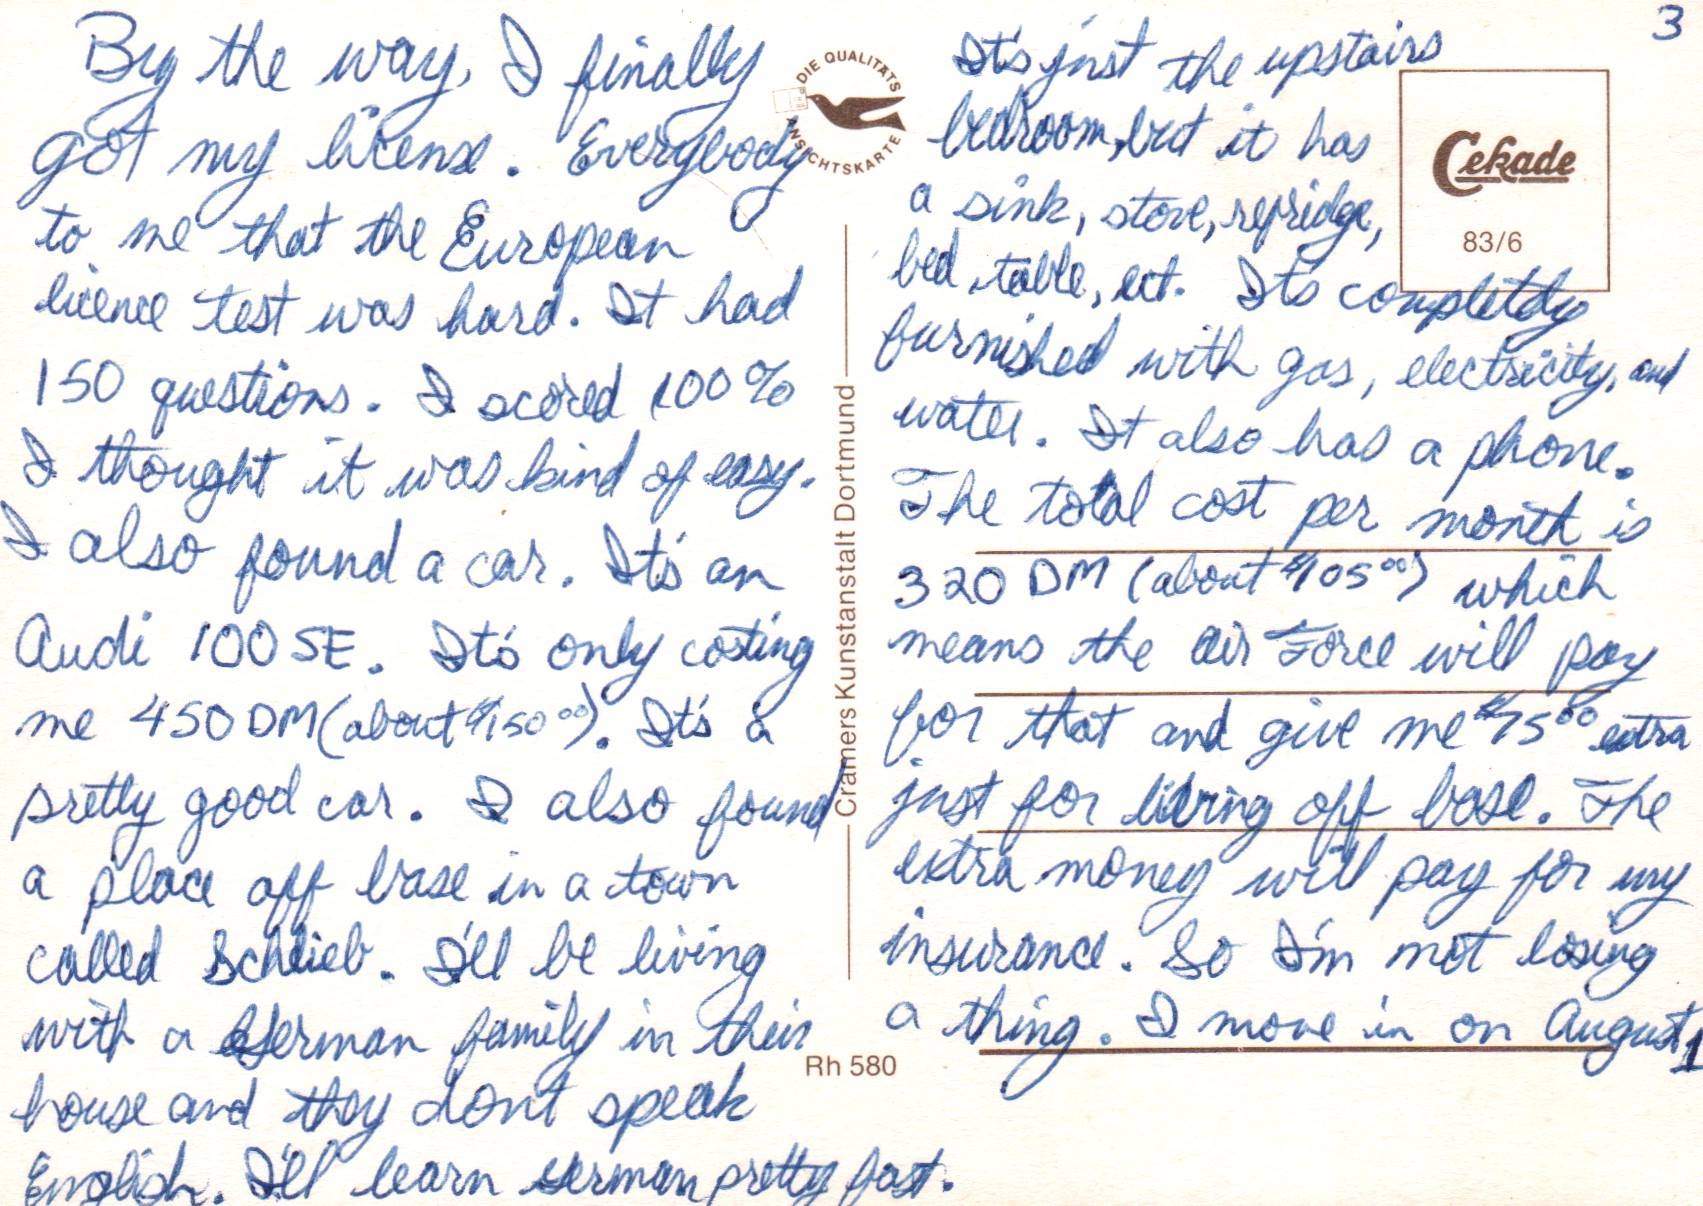 By the way, I finally
got my license. Everybody
to me that the European
licence test was hard. It had
150 questions. I scored 100%
I thought it was kind of easy.
I also found a car. It's an
Audi 100SE. It's only costing
me 450 DM (about $150⁰⁰). It's a
pretty good car. I also found
a place off base in a town
called Schlieb. I'll be living
with a German family in their
house and they don't speak
English. I'll learn German pretty fast.
DIE QUALITÄTS
ANSICHTSKARTE
Cramers Kunstanstalt Dortmund
Rh 580
3
Cekade
83/6
It's just the upstairs
bedroom, but it has
a sink, stove, refridge,
bed, table, ect. Its completely
furnished with gas, electricity, and
water. It also has a phone.
The total cost per month is
320 DM (about $105⁰⁰) which
means the Air Force will pay
for that and give me $75⁰⁰ extra
just for living off base. The
extra money will pay for my
insurance. So I'm not losing
a thing. I move in on August 1